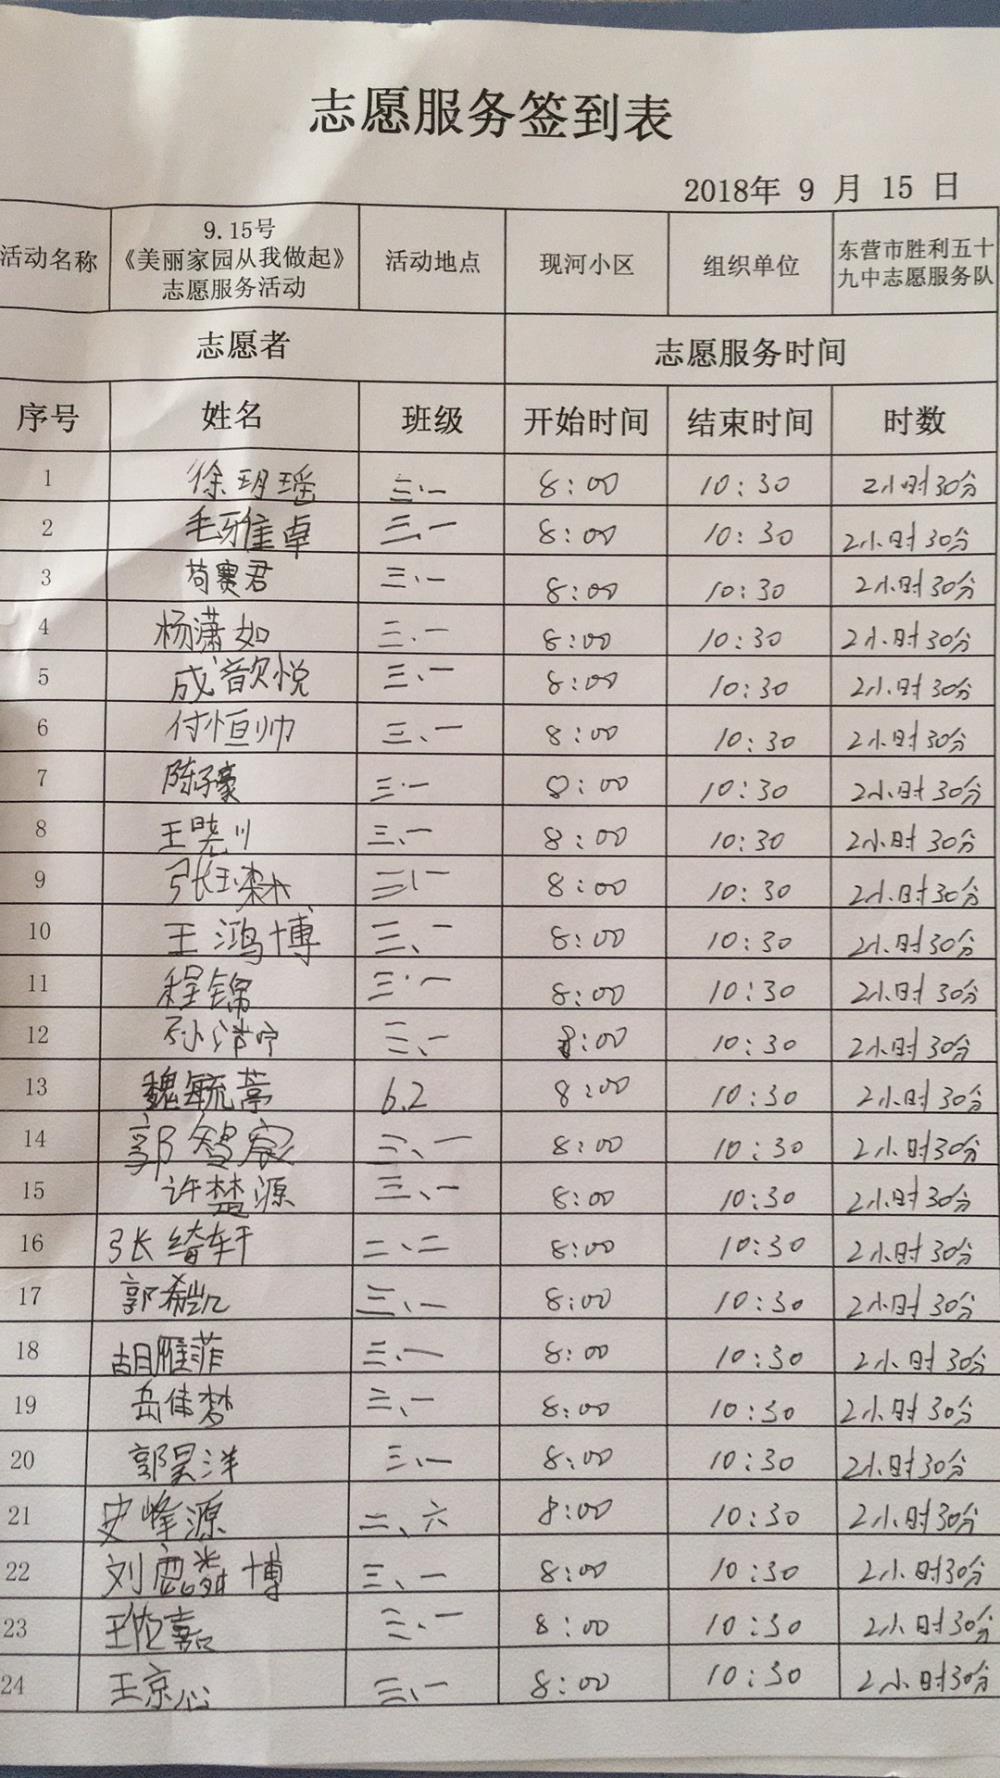 志愿服务签到表
2018年 9 月 15 日
活动名称 9.15号《美丽家园从我做起》志愿服务活动 活动地点 现河小区 组织单位 东营市胜利五十九中志愿服务队
志愿者 志愿服务时间
序号 姓名 班级 开始时间 结束时间 时数
1 徐玥瑶 三.一 8:00 10:30 2小时30分
2 毛雅卓 三、一 8:00 10:30 2小时30分
3 苟赛君 三.一 8:00 10:30 2小时30分
4 杨潇如 三.一 8:00 10:30 2小时30分
5 成歆悦 三、一 8:00 10:30 2小时30分
6 付恒帅 三、一 8:00 10:30 2小时30分
7 陈子豪 三.一 8:00 10:30 2小时30分
8 王晓川 三、一 8:00 10:30 2小时30分
9 张 三、一 8:00 10:30 2小时30分
10 王鸿博 三、一 8:00 10:30 2小时30分
11 程锦 三.一 8:00 10:30 2小时30分
12 孙 三、一 8:00 10:30 2小时30分
13 魏毓葶 6.2 8:00 10:30 2小时30分
14 郭智宸 二、一 8:00 10:30 2小时30分
15 许楚源 三、一 8:00 10:30 2小时30分
16 张绮轩 二、二 8:00 10:30 2小时30分
17 郭希凯 三、一 8:00 10:30 2小时30分
18 胡雁菲 三、一 8:00 10:30 2小时30分
19 岳伟梦 三、一 8:00 10:30 2小时30分
20 郭昊洋 三、一 8:00 10:30 2小时30分
21 史峰源 二、六 8:00 10:30 2小时30分
22 刘 博 三、一 8:00 10:30 2小时30分
23 王 嘉 三、一 8:00 10:30 2小时30分
24 王京心 三、一 8:00 10:30 2小时30分